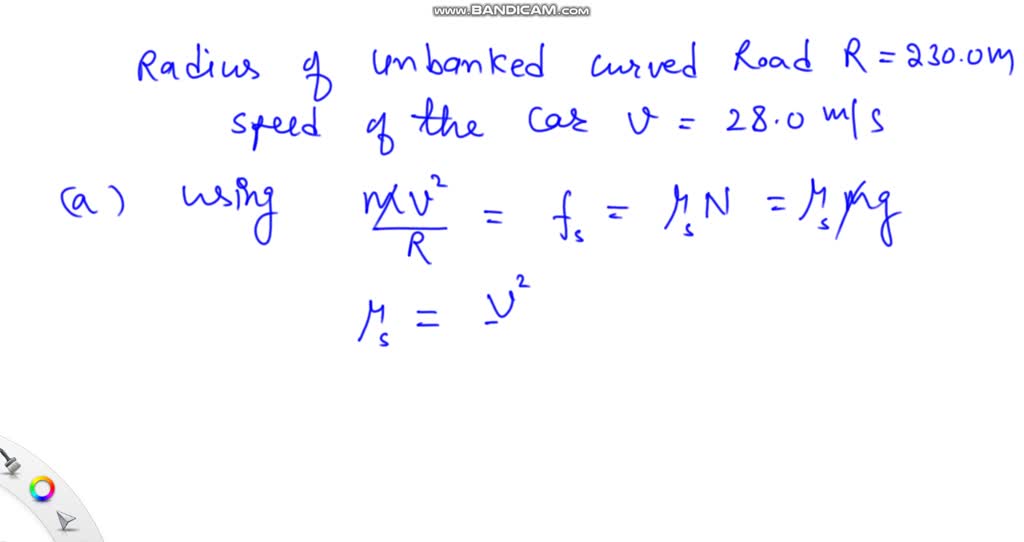 www.BANDICAM.com
Radius of unbanked curved Road R = 230.0m
speed of the car v = 28.0 m/s
(a) using mv²/R = fₛ = μₛN = μₛmg
μₛ = v²